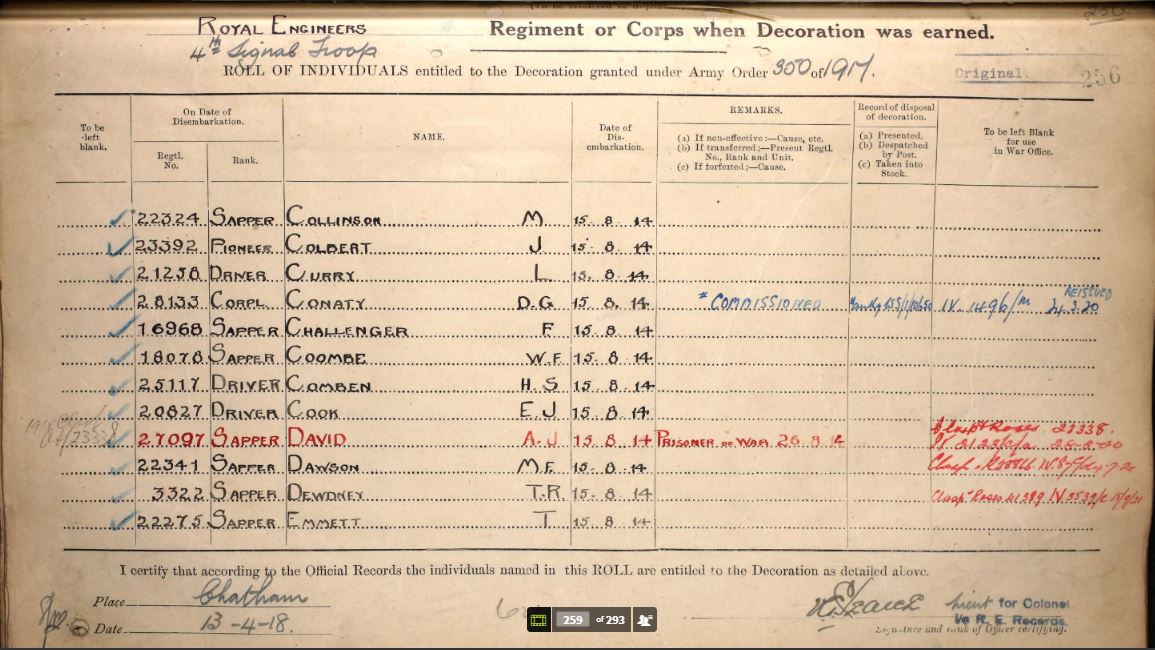 ROYAL ENGINEERS Regiment or Corps when Decoration was earned.
4th Signal Troop
ROLL OF INDIVIDUALS entitled to the Decoration granted under Army Order 350 of 1917.
Original. 256
To be left blank.
On Date of Disembarkation.
Regtl. No.
Rank.
NAME.
Date of Dis- embarkation.
REMARKS.
(a) If non-effective:—Cause, etc.
(b) If transferred;—Present Regtl. No., Rank and Unit.
(c) If forfeited;—Cause.
Record of disposal of decoration.
(a) Presented.
(b) Despatched by Post.
(c) Taken into Stock.
To be left Blank for use in War Office.
22324 SAPPER COLLINSON M 15 8 14
23392 PIONEER COLBERT J 15 8 14
21238 DRIVER CURRY L 15 8 14
28133 CORPL CONATY D.G 15 8 14 * COMMISSIONED REISSUED
16968 SAPPER CHALLENGER F 15 8 14
18078 SAPPER COOMBE W.F 15 8 14
25117 DRIVER COMBEN H.S 15 8 14
20827 DRIVER COOK E.J 15 8 14
27097 SAPPER DAVID A.J 15 8 14 PRISONER OF WAR 26 8 14 Clasp & Roses
22341 SAPPER DAWSON M.F 15 8 14 Clasp
3322 SAPPER DEWDNEY T.R 15 8 14 Clasp Roses
22275 SAPPER EMMETT T 15 8 14
I certify that according to the Official Records the individuals named in this ROLL are entitled to the Decoration as detailed above.
Place Chatham
Date 13-4-18.
Lieut for Colonel
R. E. Records.
Signature and rank of Officer certifying.
259 of 293